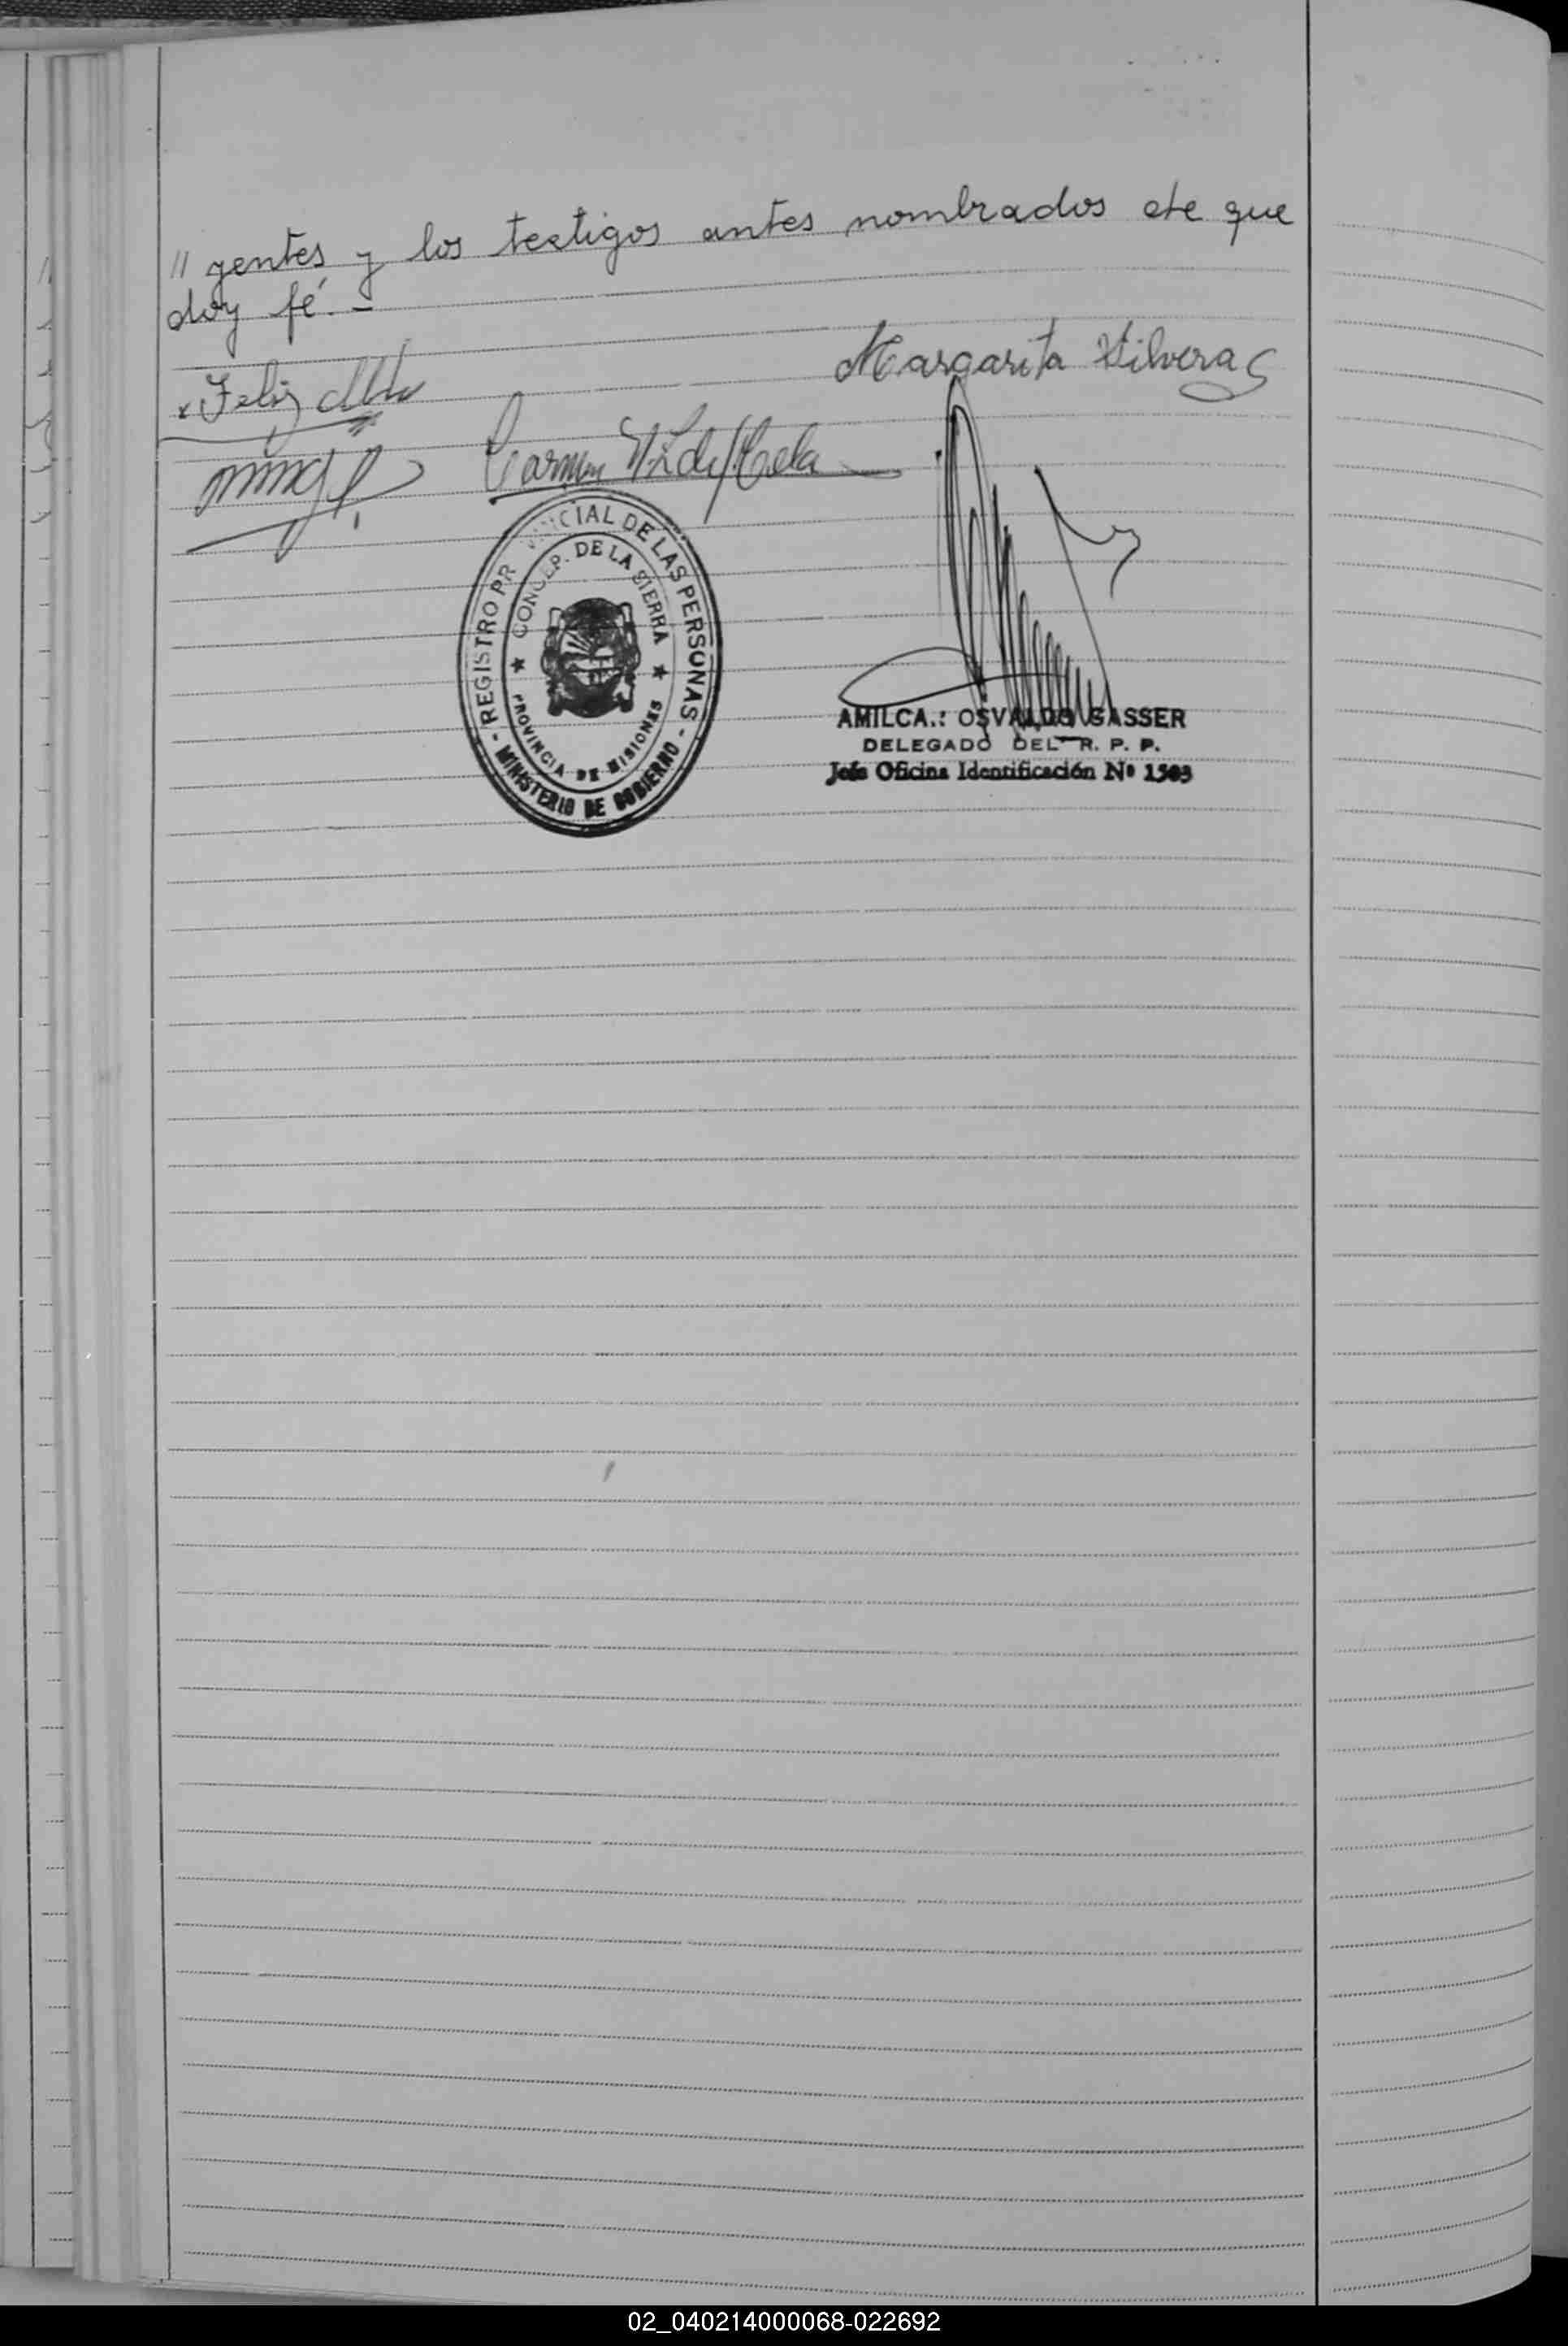 // yentes y los testigos antes nombrados de que
doy fé. -
Margarita Silveras
Feliz
Carmen
REGISTRO PR VINCIAL DE LAS PERSONAS
CONCEP. DE LA SIERRA
PROVINCIA DE MISIONES
- MINISTERIO DE GOBIERNO -
AMILCA.: OSVALDO GASSER
DELEGADO DEL R. P. P.
Jefe Oficina Identificación Nº 1503
02_040214000068-022692